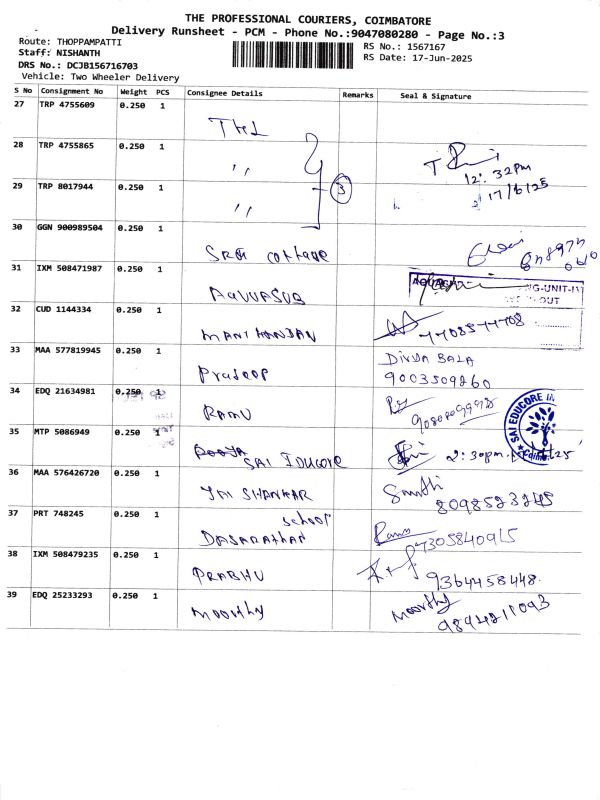 THE PROFESSIONAL COURIERS, COIMBATORE
Delivery Runsheet - PCM - Phone No.:9047080280 - Page No.:3
Route: THOPPAMPATTI
Staff: NISHANTH
DRS No.: DCJB156716703
Vehicle: Two Wheeler Delivery
RS No.: 1567167
RS Date: 17-Jun-2025
S No Consignment No Weight PCS Consignee Details Remarks Seal & Signature
27 TRP 4755609 0.250 1
28 TRP 4755865 0.250 1 ,, 12:32pm
29 TRP 8017944 0.250 1 ,, 3 17/6/25
30 GGN 900989504 0.250 1 SREE cottage
31 IXM 508471987 0.250 1 -UNIT-IV OUT
32 CUD 1144334 0.250 1 MANIKANDAN
33 MAA 577819945 0.250 1 Pradeep DIVYA BALA
9003509260
34 EDQ 21634981 0.250 1 RAMU
35 MTP 5086949 0.250 1 SAI EDUCORE 2:30pm SAI EDUCORE
36 MAA 576426720 0.250 1 JAI SHANKAR
school
37 PRT 748245 0.250 1 DASARATHAN 7305840915
38 IXM 508479235 0.250 1 PRABHU 9364458448
39 EDQ 25233293 0.250 1 Moorthy Moorthy